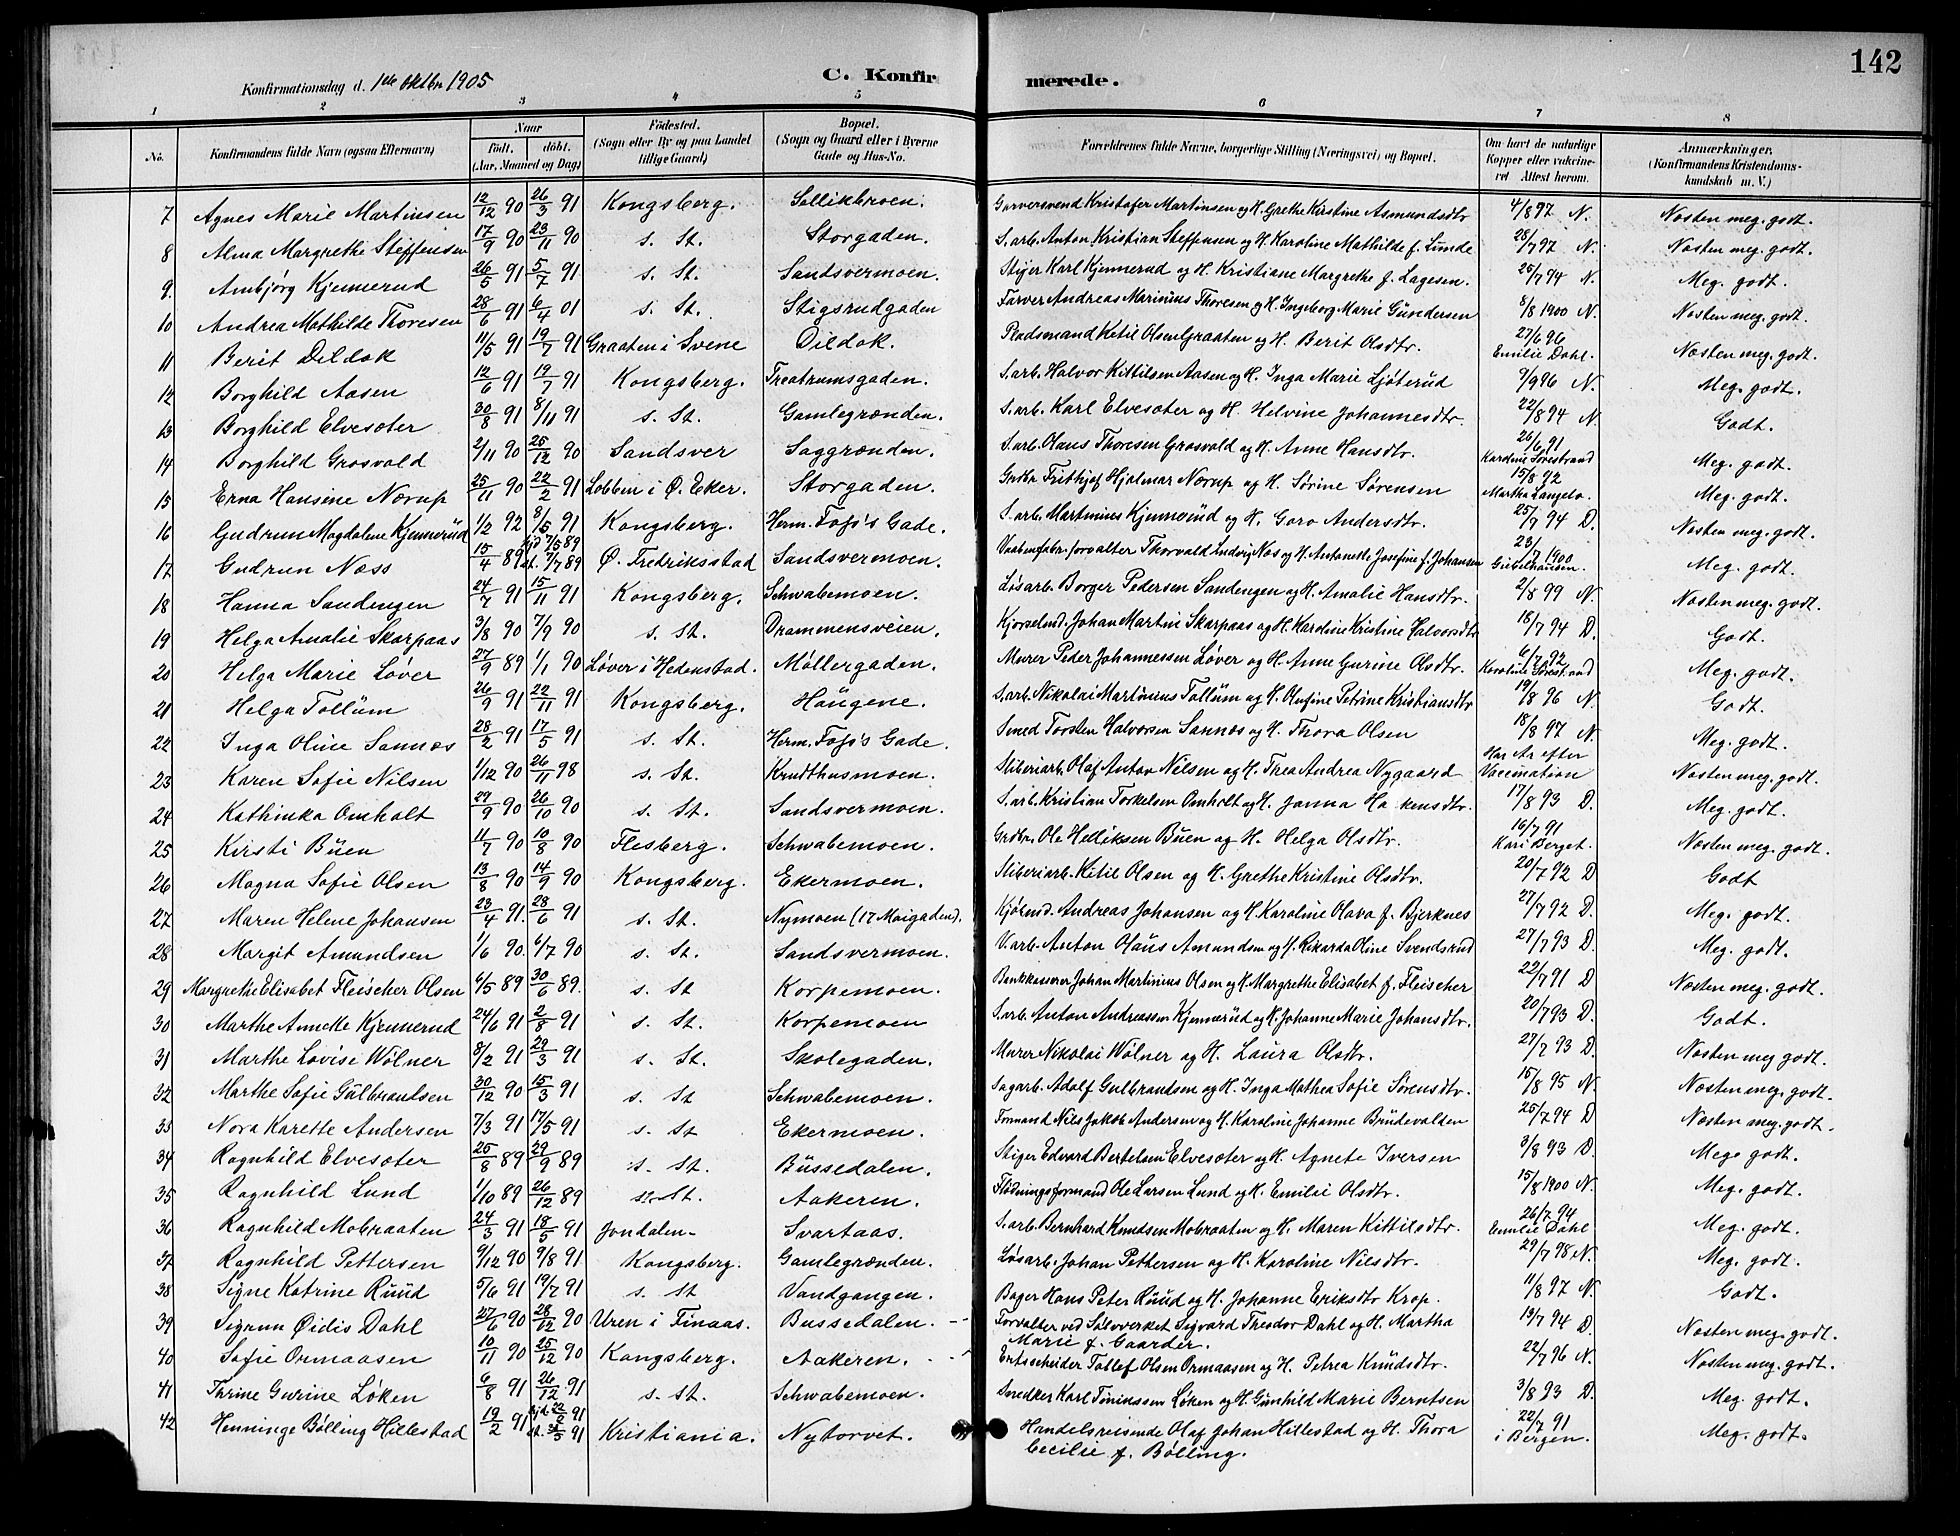 142
Konfirmationsdag d. 1ste Oktbr. 1905
C. Konfirmerede.
1 2 3 4 5 6 7 8
No. Konfirmandens fulde Navn (ogsaa Efternavn) Naar født. døbt. (Aar, Maaned og Dag) Fødested. (Sogn eller By og paa Landet tillige Gaard) Bopæl. (Sogn og Gaard eller i Byerne Gade og Hus-No. Forældrenes fulde Navne, borgerlige Stilling (Næringsvei) og Bopæl. Om havt de naturlige Kopper eller vaccineret Attest herom. Anmærkninger. (Konfirmandens Kristendomskundskab m. V.)
7 Agnes Marie Martinsen 12/12 90 26/3 91 Kongsberg. Sellikbroen. Garversvend Kristofer Martinsen og H. Grethe Kirstine Asmundsdtr 4/8 97 N. Næsten meg. godt.
8 Alma Margrethe Steffensen 17/9 90 23/11 90 s. St. Storgaden. S.arb. Anton Kristian Steffensen og H. Karoline Mathilde f. Lunde 28/7 97 N. Næsten meg. godt.
9. Ambjørg Kjennerud 26/5 91 5/7 91 s. St. Sandsvermoen. Stiger Karl Kjennerud og H. Kristiane Margrethe f. Lagesen. 25/7 94 N. Meg. godt.
10 Andrea Mathilde Thoresen 28/6 91 6/4 01 s. St. Stigsrudgaden Farver Andreas Marinius Thoresen og H. Ingeborg Marie Gundersen 8/8 1900 N. Næsten meg. godt.
11 Berit Dildok 11/5 91 19/7 91 Graaten i Svene Dildok. Pladsmand Ketil Olsen Graaten og H. Berit Olsdtr. 27/6 96 Emilie Dahl. Næsten meg. godt.
12 Borghild Aasen 12/6 91 19/7 91 Kongsberg. Treatrumsgaden. S.arb. Halvor Kittilsen Aasen og H. Inga Marie Ljøterud 9/9 96 N. Meg. godt.
13 Borghild Elvesæter 30/8 91 8/11 91 s. St. Gamlegrænden. S.arb. Karl Elvesæter og H. Helvine Johannesdtr. 22/8 94 N. Godt.
14 Borghild Grosvald 2/11 90 25/12 90 Sandsver Saggrænden. S.arb. Hans Thoresen Grosvald og H. Anne Hansdtr. 26/6 91 Karoline Sørestrand Meg. godt.
15 Erna Hansine Nærup 25/11 90 22/2 91 Lobben i Ø. Eker. Storgaden. Grdbr. Frithjof Hjalmar Nærup og H. Sørine Sørensen 15/8 92 Martha Langelo. Meg. godt.
16 Gudrun Magdalene Kjennerud 1/2 92 8/5 91 Kongsberg. Herm. Foss's Gade. S.arb. Martinius Kjennerud og H. Goro Andersdtr. 25/7 94 D. Næsten meg. godt.
17 Gudrun Næss 15/4 89 hjd 7/5 89 st. 7/7 89 Ø. Fredriksstad Sandsvermoen. Vaabenfabr. forvalter Thorvald Ludvig Næs og H. Antonette Josefine f. Johansen 23/7 1900 Meg. godt.
18 Hanna Sandengen 24/7 91 15/11 91 Kongsberg. Schwabemoen. Løsarb. Borger Pedersen Sandengen og H. Amalie Hansdtr. 2/8 99 N. Næsten meg. godt.
19 Helga Amalie Skarpaas 3/8 90 7/9 90 s. St. Drammensveien. Kjørselmd. Johan Martin Skarpaas og H. Karoline Kristine Halvorsdtr 18/7 94 D. Godt.
20 Helga Marie Løver 27/9 89 1/1 90 Løver i Hedenstad. Møllergaden. Murer Peder Johannessen Løver og H. Anne Gurine Olsdtr. 6/7 92 Karoline Sørestrand Meg. godt.
21 Helga Tollum 26/9 91 22/11 91 Kongsberg. Haugene. S.arb. Nikolai Martinius Tollum og H. Olufine Petrine Kristiansdtr 19/8 96 N. Godt.
22 Inga Oline Sannæs 28/2 91 17/5 91 s. St. Herm. Foss's Gade. Smed Torsten Halvorsen Sannæs og H. Thora Olsen 18/8 97 N. Meg. godt.
23 Karen Sofie Nilsen 1/12 90 26/11 98 s. St. Krudthusmoen. Sliberiarb. Olaf Anton Nilsen og H. Thea Andrea Nygaard Har Ar efter Vaccination Næsten meg. godt.
24 Kathinka Omholt 29/9 90 26/10 90 s. St. Sandsvermoen. S.arb. Kristian Torkelsen Omholt og H. Janna Haakensdtr. 17/8 93 D. Meg. godt.
25 Kirsti Buen 11/7 90 10/8 90 Flesberg. Schwabemoen. Grdbr. Ole Helliksen Buen og H. Helga Olsdtr. 16/7 91 Kari Berget. Næsten meg. godt.
26 Magna Sofie Olsen 13/8 90 14/9 90 Kongsberg. Ekermoen. Sliberiarb. Ketil Olsen og H. Grethe Kristine Olsdtr. 20/7 92 D Godt
27 Maren Helene Johansen 23/4 91. 28/6 91 s. St. Nymoen (17 Maigaden). Kjørmd. Andreas Johansen og H. Karoline Olava f. Bjerknes 27/7 92 D. Meg. godt.
28 Margit Amundsen 1/6 90. 6/7 90 s. St. Sandsvermoen. V.arb. Anton Olaus Amundsen og H. Rikarda Oline Svendsrud 27/7 93 D. Meg. godt.
29 Margrethe Elisabet Fleischer Olsen 6/5 89 30/6 89. s. St Korpemoen. Bankkaserer Johan Martinius Olsen og H. Margrethe Elisabet f. Fleischer 22/7 91 D Næsten meg. godt.
30 Marthe Annette Kjennerud 24/6 91 2/8 91 s. St. Korpemoen S.arb. Anton Andreassen Kjennerud og H. Johanne Marie Johansdtr. 20/7 93 D. Godt.
31 Marthe Lovise Wølner 8/2 91 29/3 91 s. St. Skolegaden. Murer Nikolai Wølner og H. Laura Olsdtr. 27/7 93 D. Næsten meg godt.
32 Marthe Sofie Gulbrandsen 30/12 90 15/3 91 s. St Schwabemoen. Sagarb. Adolf Gulbrandsen og H. Inga Mathea Sofie Sørensdtr. 15/8 95 N. Næsten meg. godt.
33 Nora Karette Andersen 7/3 91 17/5 91 s. St Ekermoen. Formand Nils Jakob Andersen og H. Karoline Johanne Brudevolden 25/7 94 D Næsten meg. godt.
34 Ragnhild Elvesæter 25/8 89 29/9 89 s. St. Bussedalen. Stiger Edvard Bertelsen Elvesæter og H. Agnete Iversen 3/8 93 D. Meg. godt.
35 Ragnhild Lund 1/10 89 26/12 89 s. St. Aakeren. Flødningsformand Ole Larsen Lund og H. Emilie Olsdtr. 15/8 1900 N. Meg. godt.
36 Ragnhild Mobraaten 24/3 91 18/5 91 Jondalen Svartaas. S.arb. Bernhard Knudsen Mobraaten og H. Maren Kittilsdtr. 26/7 94 Emilie Dahl Meg. godt.
37 Ragnhild Pettersen 9/12 90 9/8 91 Kongsberg. Gamlegrænden. Løsarb. Johan Pettersen og H. Karoline Nilsdtr. 29/7 98 N. Meg. godt.
38 Signe Katrine Ruud 5/6 91 19/7 91 s. St Vandgangen. Bager Hans Peter Ruud og H. Johanne Eriksdtr Krop. 11/8 97 N. Godt.
39 Sigrun Øidis Dahl 27/6 90 28/12 90 Uren i Finaas. Bussedalen. Forvalter ved Sølvverket Sigvard Theodor Dahl og H. Martha Marie f. Gaarder. 13/7 94 D. Næsten meg. godt.
40 Sofie Ormaasen 10/11 90 25/12 90 Kongsberg. Aakeren. Ertsscheider Tollef Olsen Ormaasen og H. Petrea Knudsdtr. 22/7 96 N. Næsten meg. godt.
41 Thrine Gurine Løken 6/8 91 26/12 91 s. St. Schwabemoen. Snedker Karl Tiniussen Løken og H. Gunhild Marie Berntsen 3/8 93 D. Meg. godt.
42 Henninge Bølling Hillestad 19/2 91 hjd. 22/2 91 st. 31/5 91 Kristiania. Nytorvet. Handelsreisende Olaf Johan Hillestad og H. Thora Cecilie f. Bølling. 22/7 91 i Bergen. Meg. godt.